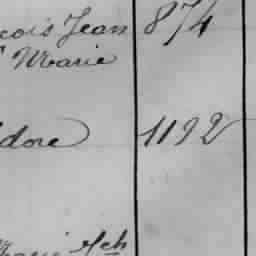 cois Jean 874
Marie
dore 1192